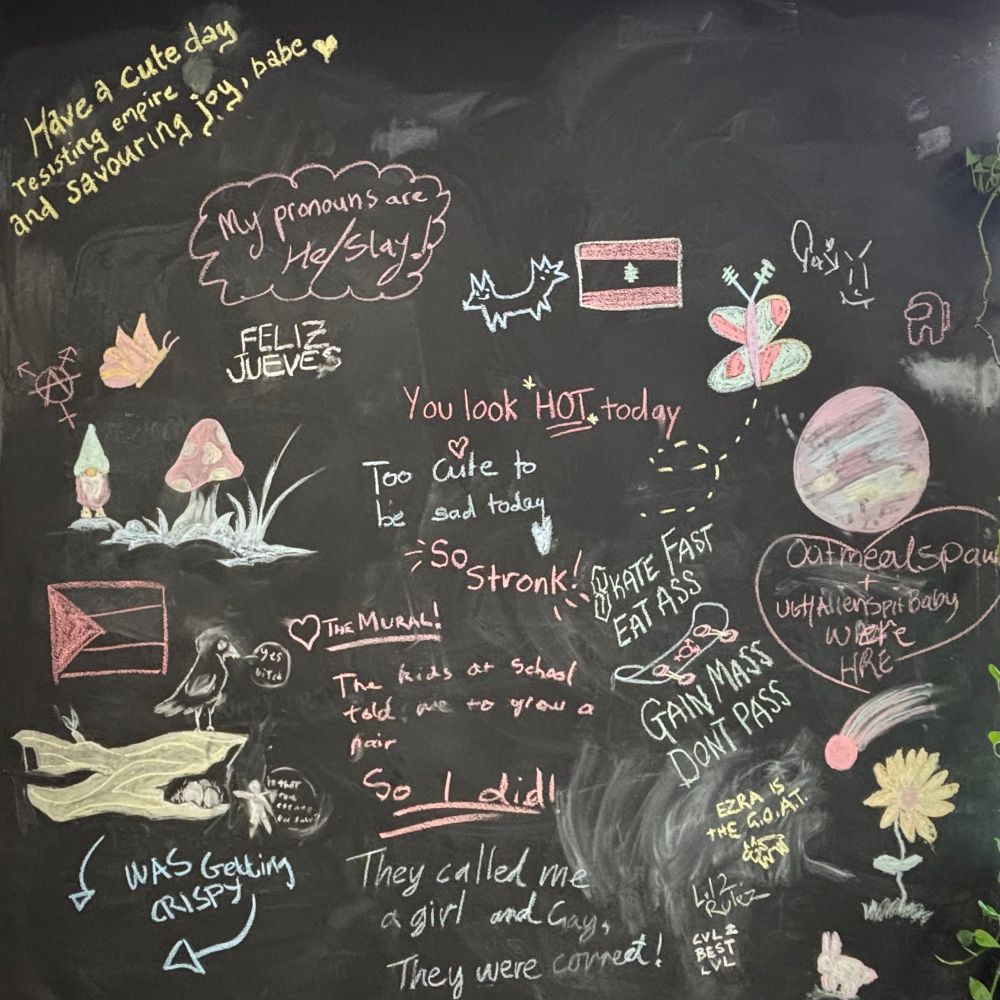 Have a cute day
resisting empire
and savouring joy, babe
My pronouns are
He/Slay!
FELIZ
JUEVES
Yay
You look HOT today
Too cute to
be sad today
So
Stronk!
SKATE FAST
EAT ASS
GAIN MASS
DONT PASS
Oatmeal Spawn
+
UGH/Alien Spit Baby
were
HRE
THE MURAL!
The kids at school
told me to grow a
pair
So I did!
yes
bitch
is that
real
estate
for sale?
WAS Getting
CRISPY
They called me
a girl and Gay,
They were correct!
EZRA IS
THE G.O.A.T.
LVL 2
Rulez
LVL 2
BEST
LVL